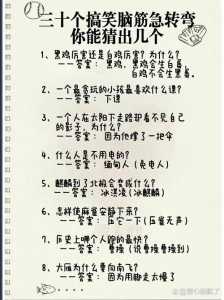 三十个搞笑脑筋急转弯
你能猜出几个
1、黑鸡厉害还是白鸡厉害？为什么？
——答案：黑鸡，黑鸡会生白蛋，
白鸡不会生黑蛋。
2、一个最贪玩的小孩最喜欢什么课？
——答案：下课
3、一个人在太阳下走路却看不见自己
的影子，为什么？
——答案：因为他撑了一把伞
4、什么人是不用电的？
——答案：缅甸人（免电人）
5、麒麟到了北极会变成什么？
——答案：冰淇凌（冰麒麟）
6、怎样使麻雀安静下来？
——答案：压它一下（压雀无声）
7、历史上哪个人跑的最快？
——答案：曹操（说曹操曹操到）
8、大雁为什么要向南飞？
——答案：因为用脚走太慢了